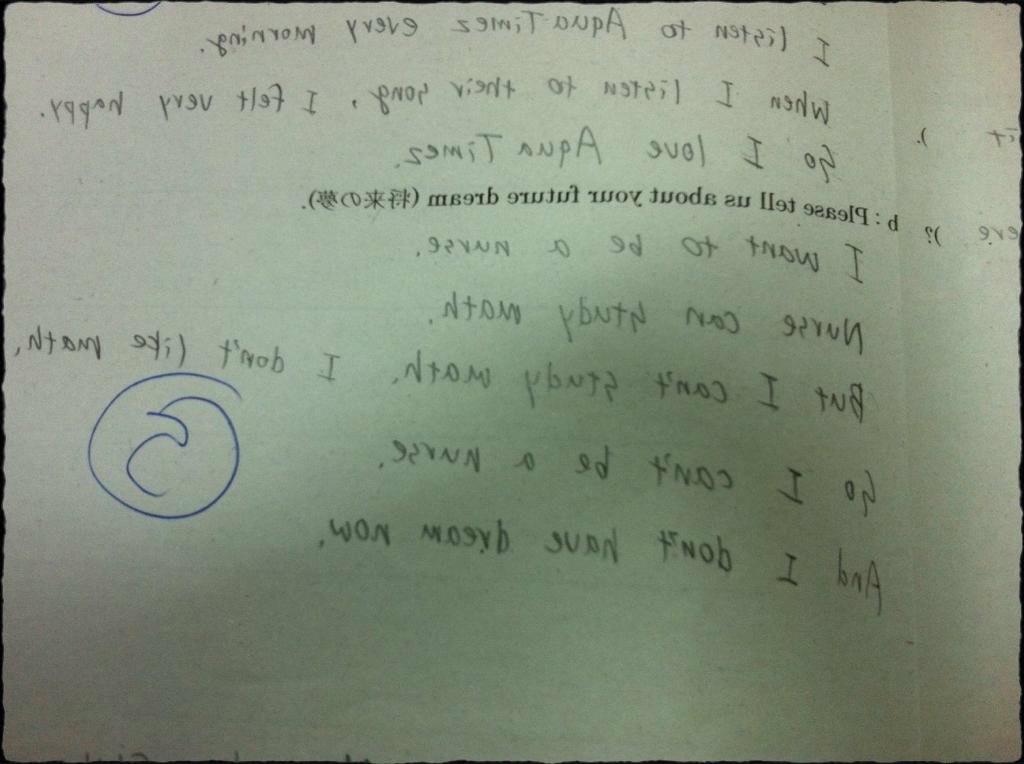 I listen to Aqua Timez every morning.
When I listen to their song, I felt very happy.
So I love Aqua Timez.
b : Please tell us about your future dream (将来の夢).
I want to be a nurse.
Nurse can study math.
But I can't study math. I don't like math.
So I can't be a nurse.
And I don't have dream now.